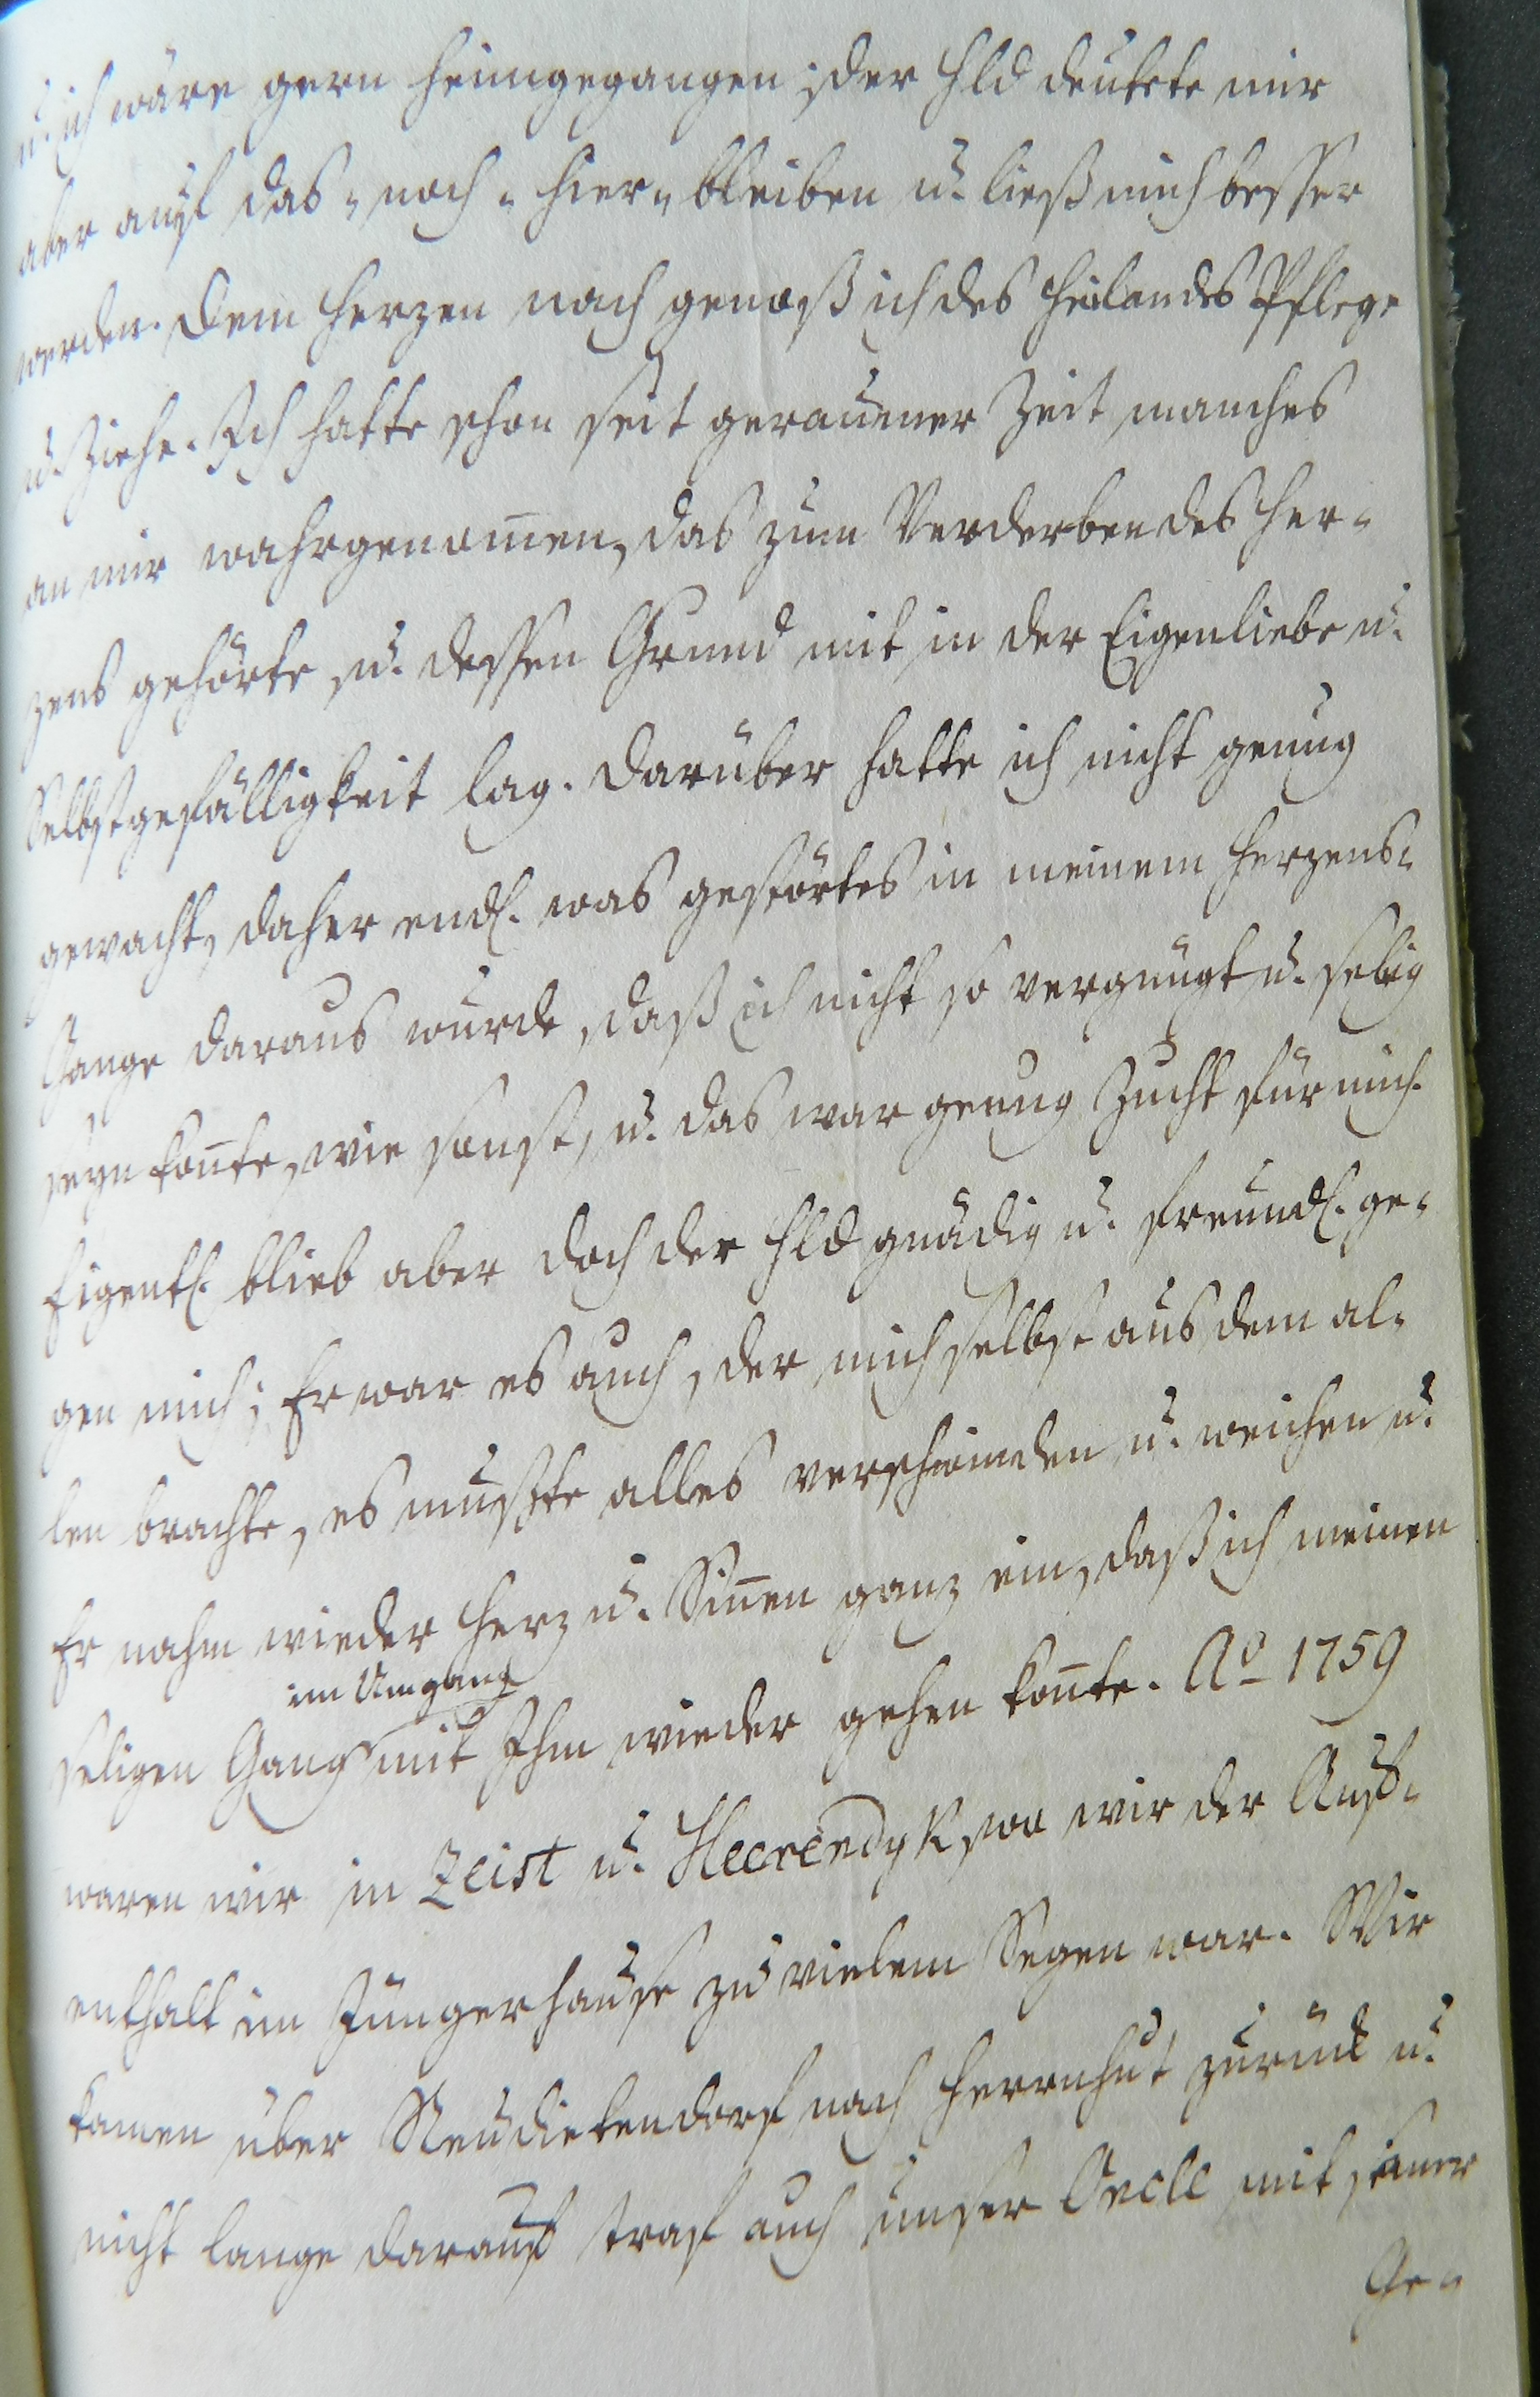 u. ich wäre gern heimgegangen; der Hld deutete mir
aber aufs das-noch-hier-bleiben u. ließ mich besser
werden. Dem Herzen nach genoß ich des Heilandes Pflege
u. Ziehe. Ich hatte schon seit geraumer Zeit manches
an mir wahrgenom̅en, das zum Verderben des Her-
zens gehörte, u. dessen Grund mit in der Eigenliebe u.
Selbstgefälligkeit lag. Darüber hatte ich nicht genug
gewacht, daher endl. was gestörtes in meinem Herzens-
Gange daraus wurde, daß ich nicht so vergnügt u. selig
seyn kon̅te, wie sonst, u. das war genug Zucht für mich.
Eigentl. blieb aber doch der Hld gnädig u. freundl. ge-
gen mich; Er war es auch, der mich selbst aus dem al-
len brachte, es mußte alles verschwinden u. weichen u.
Er nahm wieder Herz u. Sin̅en ganz ein, daß ich meinen
im Umgang
seligen Gang mit Ihm wieder gehen kon̅te. Ao 1759
waren wir in Zeist u. Heerendyk, wo wir der Auf-
enthalt im Jüngerhause zu vielem Segen war. Wir
kamen über Neudietendorf nach Herrnhut zurück u.
nicht lange darauf traf auch unser mit seiner
Ge-